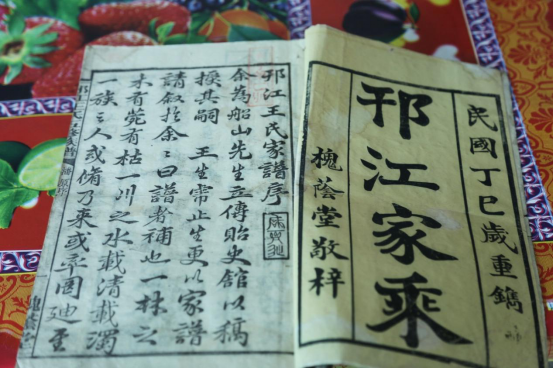 民國丁巳歲重鐫
邗江家乘
槐蔭堂敬梓
邗江王氏家譜序
余為船山先生立傳貽史館以稿
授其嗣 王生霈止生更以家譜
請敘於余余曰譜者補也一林之
木有菀有枯一川之水載清載濁
一族之人或脩乃來或平園廸至